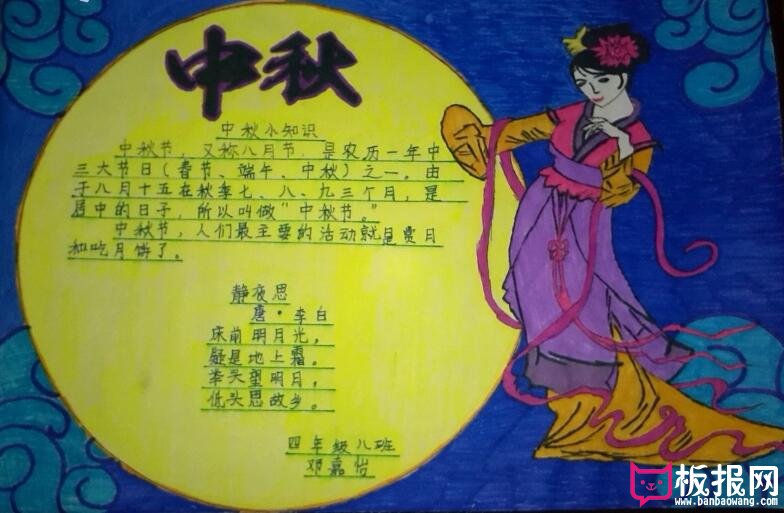 中秋
中秋小知识
中秋节，又称八月节，是农历一年中
三大节日（春节、端午、中秋）之一。由
于八月十五在秋季七、八、九三个月，是
居中的日子，所以叫做“中秋节。”
中秋节，人们最主要的活动就是赏月
和吃月饼了。
静夜思
唐·李白
床前明月光，
疑是地上霜。
举头望明月，
低头思故乡。
四年级八班
邓嘉怡
板报网
www.banbaowang.com